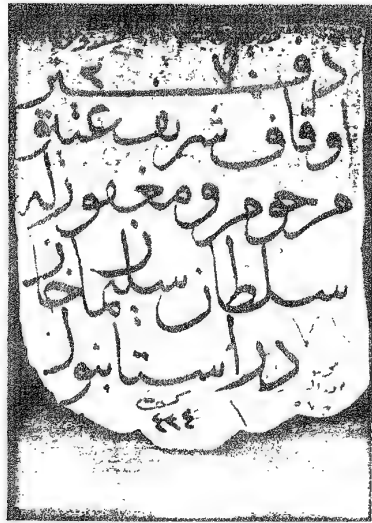 دفتر
اوقاف شريف
مرحوم ومغفورله
سلطان سليمان خان
در استانبول